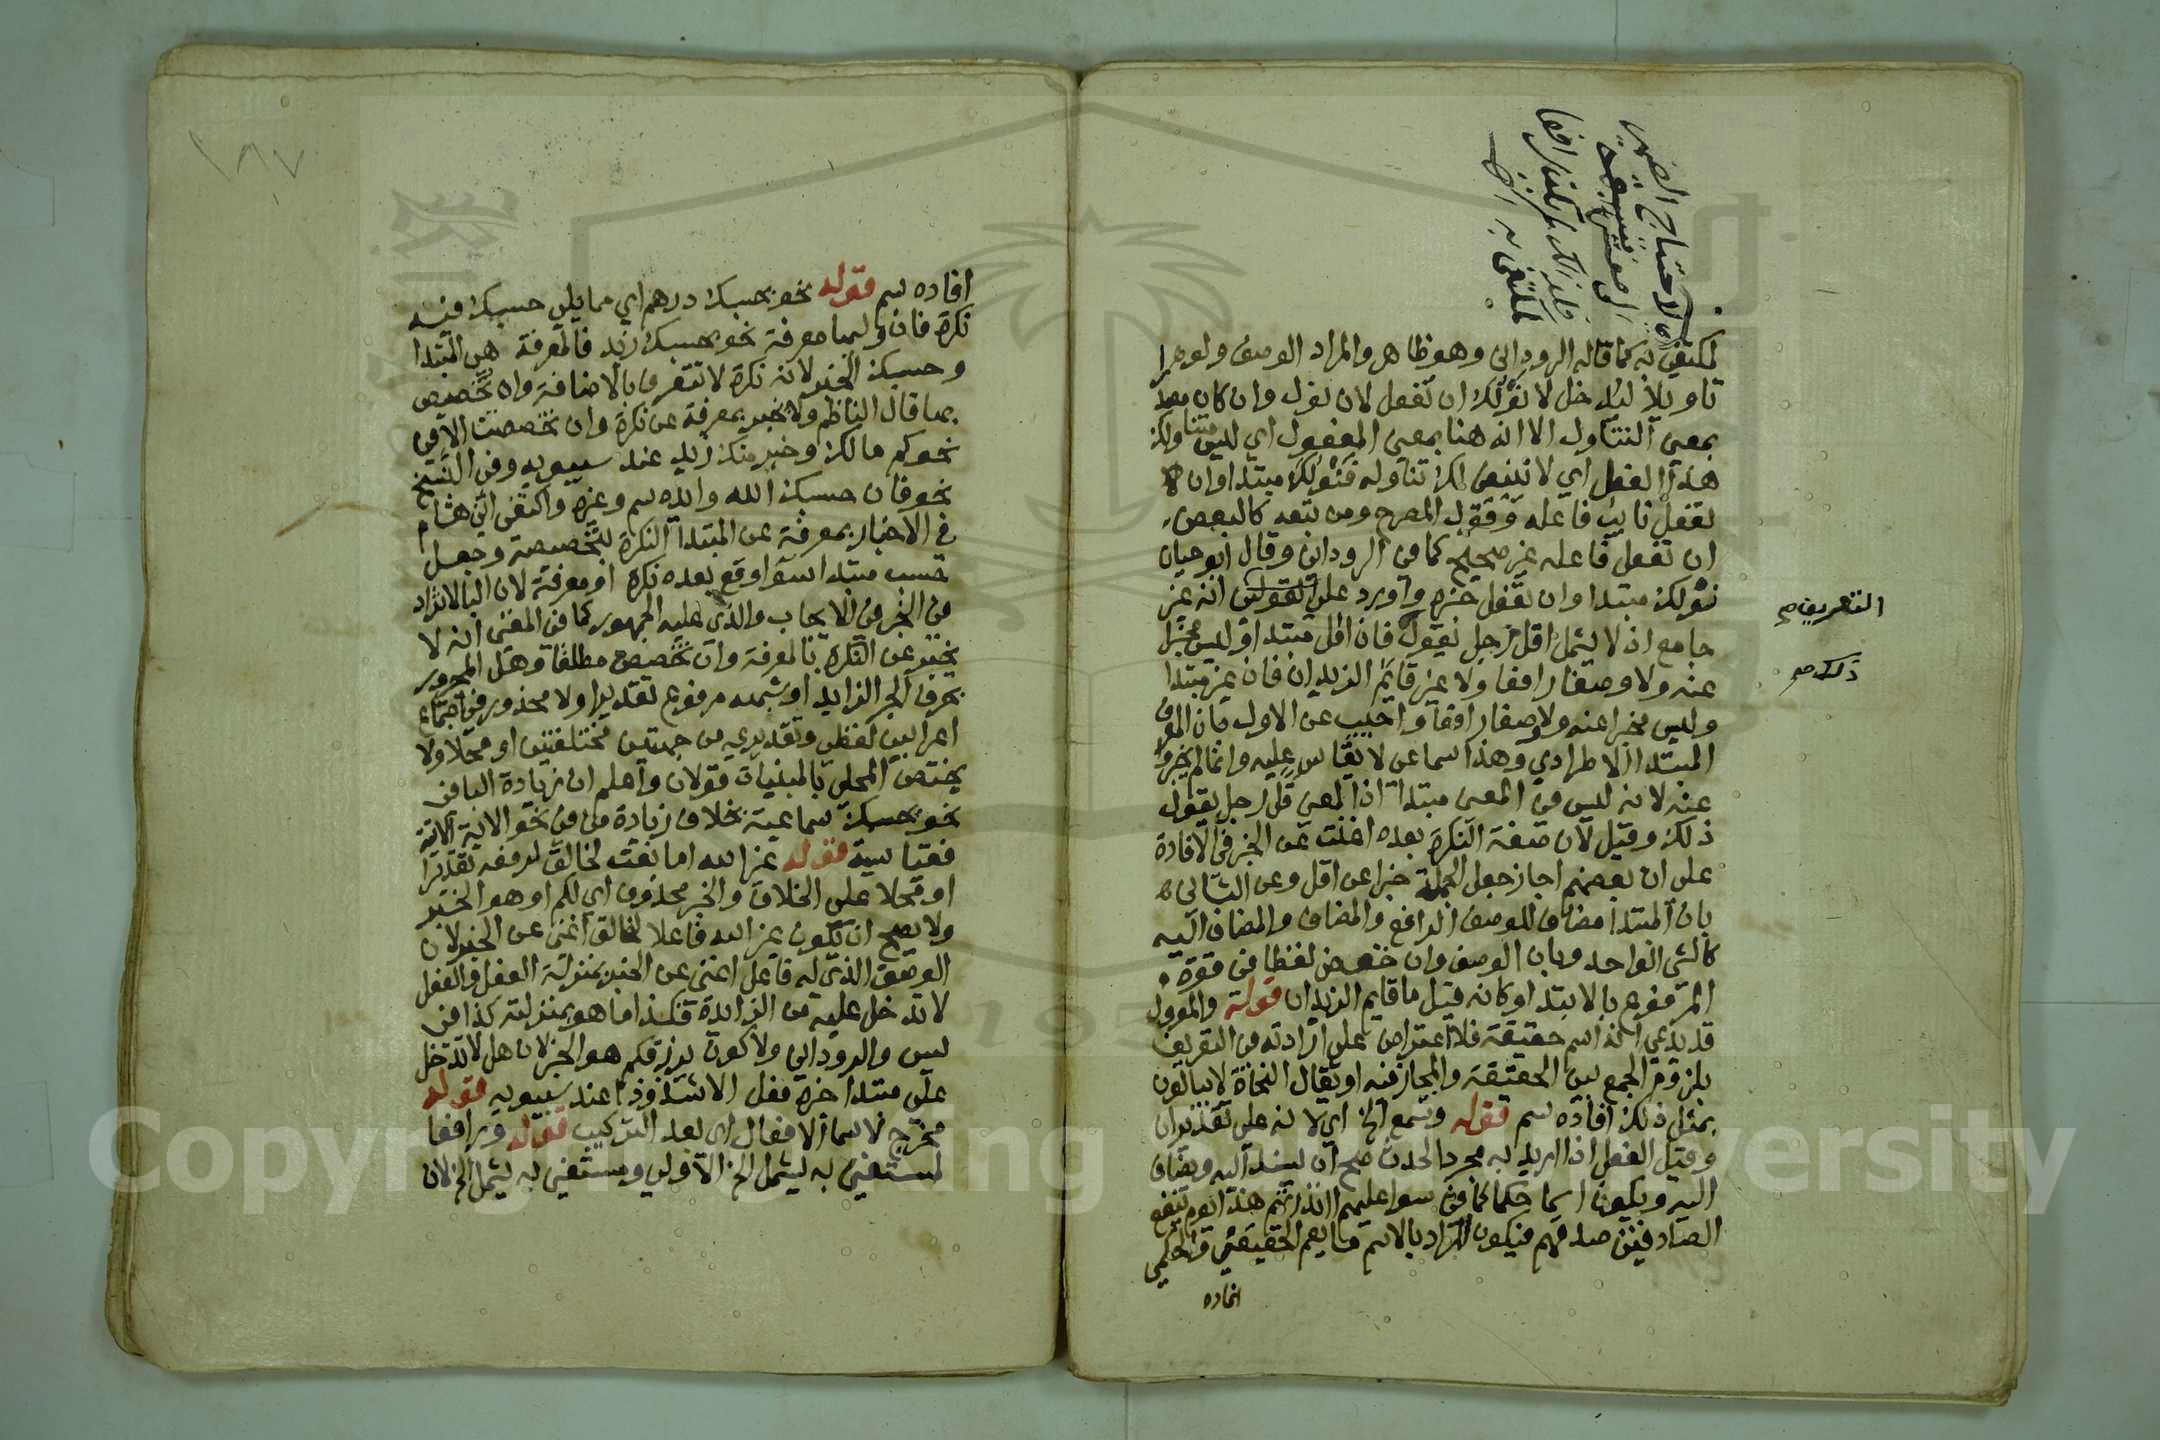 الاحتياج الضمير
الى مفسر
فلذلك لم يكن رافعا
لمكتفى به
لمكتفى به كما قاله الروداني وهو ظاهر والمراد الوصف ولو
تاويلا ليدخل لا نولك ان تفعل لان نول وان كان مصدرا
بمعنى التناول الا انه هنا بمعنى المفعول اي ليس متناولك
هذا الفعل اي لا ينبغي لك تناوله فنولك مبتدا وان
تفعل نائب فاعله وقول المصرح ومن تبعه كالبعض
ان تفعل فاعله غير صحيح كما في الروداني وقال ابو حيان
نولك مبتدا وان تفعل خبره واورد على انه غير
التعريف صح
جامع اذ لا يشمل اقل رجل يقول فان اقل مبتدا وليس مخبرا
ذلك صح
عنه ولا وصفا رافعا ولا غير قايم الزيدان فان غير مبتدا
وليس مخبرا عنه ولا وصفا رافعا واجيب عن الاول بان المعرف
المبتدا الاطرادي وهذا سماعي لا يقاس عليه وانما لم يخبروا
عنه لانه ليس في المعنى مبتدا اذ المعنى قل رجل يقول
ذلك وقيل لان صفة النكرة بعده اغنت عن الخبر في الافادة
على ان بعضهم اجاز جعل الجملة خبرا عن اقل وعن الثاني
بان المبتدا مضاف للوصف الرافع والمضاف والمضاف اليه
كالشي الواحد وبان الوصف وان خفض لفظا في قوة
المرفوع بالابتدا وكانه قيل ما قايم الزيدان قوله والمؤول
قد يدعي انه اسم حقيقة فلا اعتراض على ارادته في التعريف
بلزوم الجمع بين الحقيقة والمجاز فيه او يقال النحاة لا يبالون
بمثل ذلك افاده سم قوله وتسمع الخ اي لانه على تقدير ان
وقيل الفعل اذا اريد به مجرد الحدث صح ان يسند اليه ويضاف
اليه ويكون اسما حكما كما في سوا عليهم اانذرتهم هذا يوم ينفع
الصادقين صدقهم فيكون المراد بالاسم ما يعم الحقيقي والحكمي
افاده
١٨٧
افاده سم قوله نحو بحسبك درهم اي مما يلي حسبك فيه
نكرة فان وليها معرفة نحو بحسبك زيد فالمعرفة هي المبتدا
وحسبك الخبر لانه نكرة لا تتعرف بالاضافة وان تخصص
بها قال الناظم ولا يخبر بمعرفة عن نكرة وان تخصصت الا في
نحو كم مالك وخير منك زيد عند سيبويه وفي النسخ
نحو فان حسبك الله وابنه سم وغيره واكتفى ابن هشام
في الاخبار بمعرفة عن المبتدا النكرة بتخصيصه وجعل
حسب مبتدا سوا وقع بعده نكرة او معرفة لان البا لا تزاد
في الخبر في الايجاب والذي عليه الجمهور كما في المغنى انه لا
يخبر عن النكرة بالمعرفة وان تخصص مطلقا وهل المجرور
بحرف الجر الزايد او شبهه مرفوع تقديرا ولا محذور في اجتماع
اعرابين لفظي وتقديري من جهتين مختلفتين او محلا ولا
يختص المحلي بالمبنيات قولان واعلم ان زيادة البا في
نحو بحسبك سماعية بخلاف زيادة من في نحو الاية الاتية
فقياسية قوله غير الله اما نعت لخالق لرفعه تقديرا
او محلا على الخلاف والخبر محذوف اي لكم او هو الخبر
ولا يصح ان يكون غير الله فاعلا لخالق اغنى عن الخبر لان
الوصف الذي له فاعل اغنى عن الخبر بمنزلة الفعل والفعل
لا تدخل عليه من الزايدة فكذا ما هو بمنزلته كذا في
يس والروداني ولا كون يرزقكم هو الخبر لان هل لا تدخل
على مبتدا خبره فعل الا شذوذا عند سيبويه قوله
مخرج لاسما الافعال اي بعد التركيب قوله ورافعا
لمستغنى به ليشمل الخ الاولى ومستغنى به يشمل الخ لان